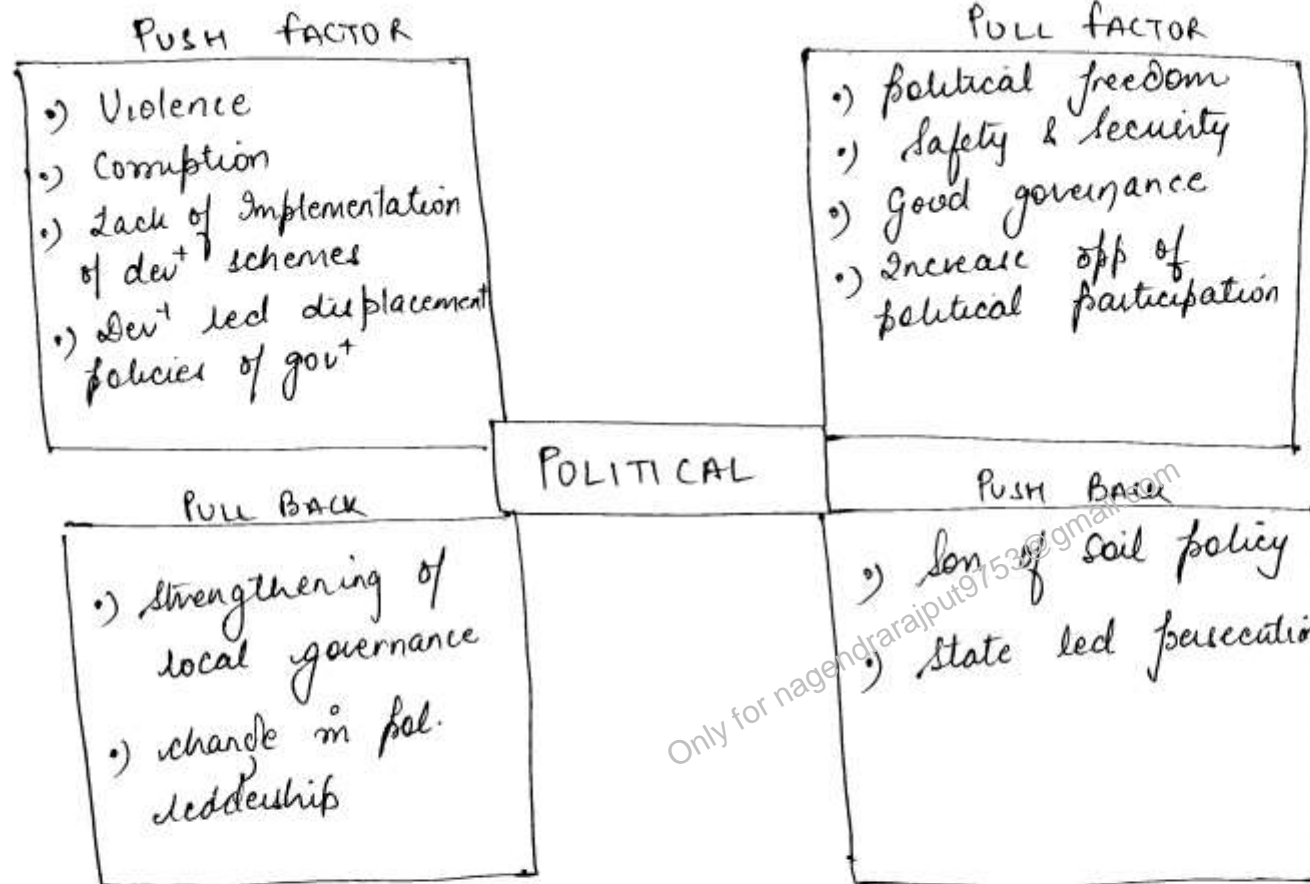 PUSH FACTOR
•) Violence
•) Corruption
•) Lack of Implementation
of dev⁺ schemes
•) Dev⁺ led displacement
policies of gov⁺
PULL FACTOR
•) political freedom
•) Safety & Secuirty
•) Good governance
•) Increase opp of
political participation
POLITICAL
PULL BACK
•) strengthening of
local governance
•) change in pol.
leadership
PUSH BACK
•) Son of soil policy
•) State led persecution
Only for nagendrarajput9753@gmail.com